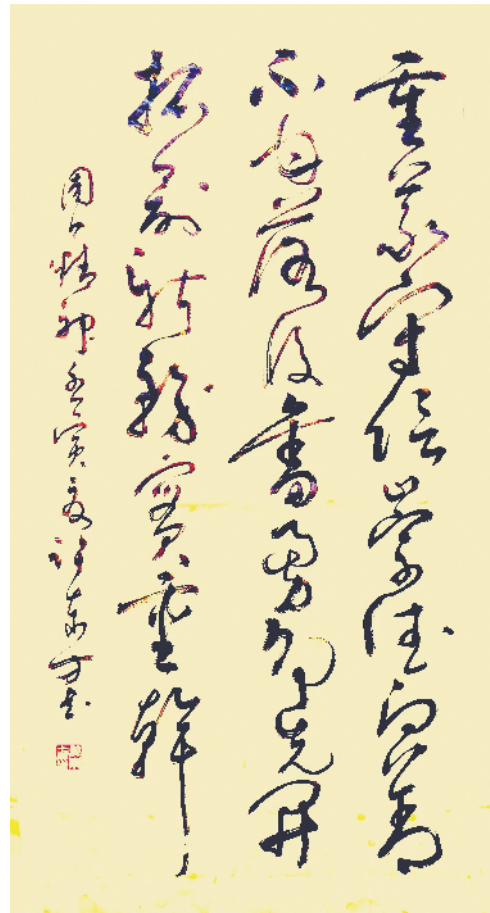 重義守信崇德向善
不甘落後奮勇争先開
拓創新務實重幹
周口精神壬寅夏許東方書